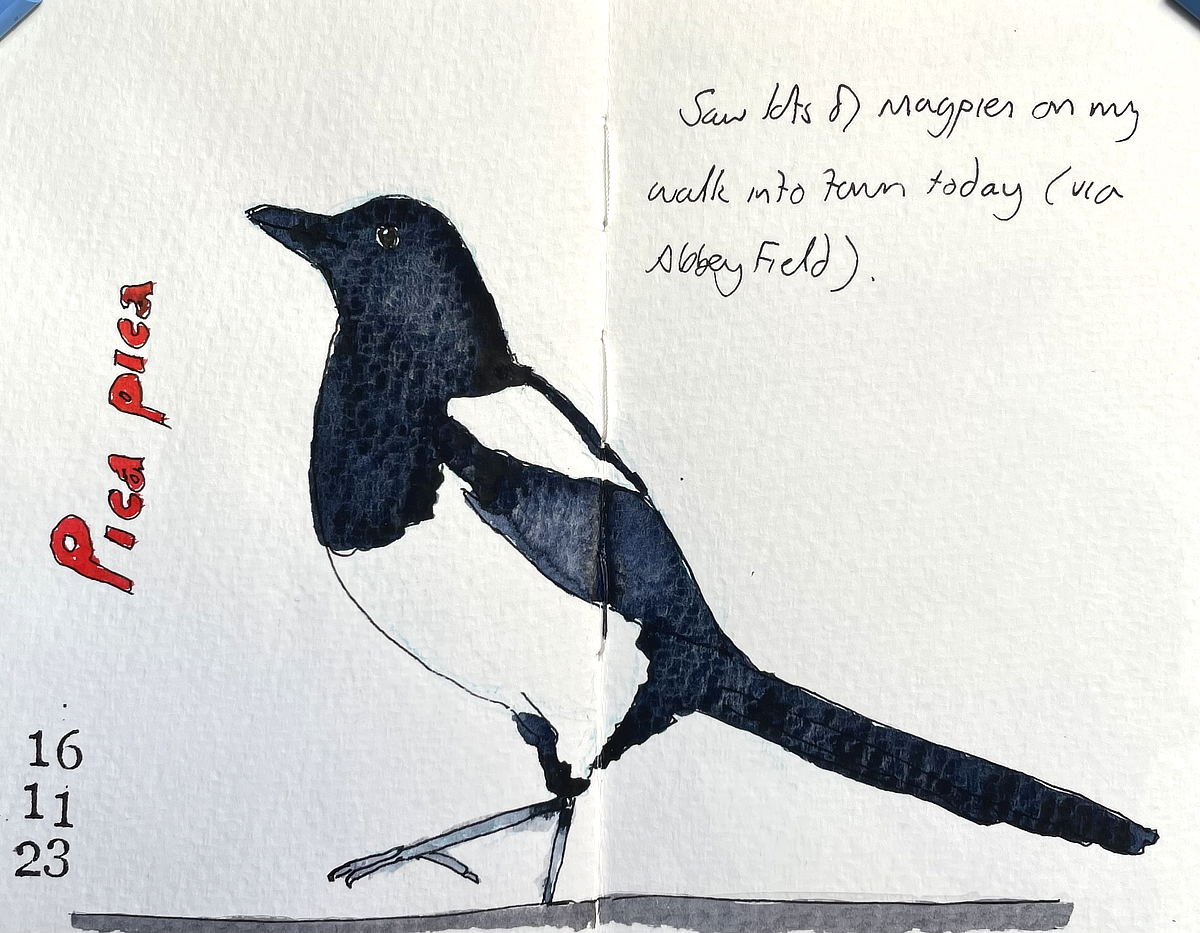 Pica pica
16
11
23
Saw lots of magpies on my
walk into town today (via
Abbey Field).